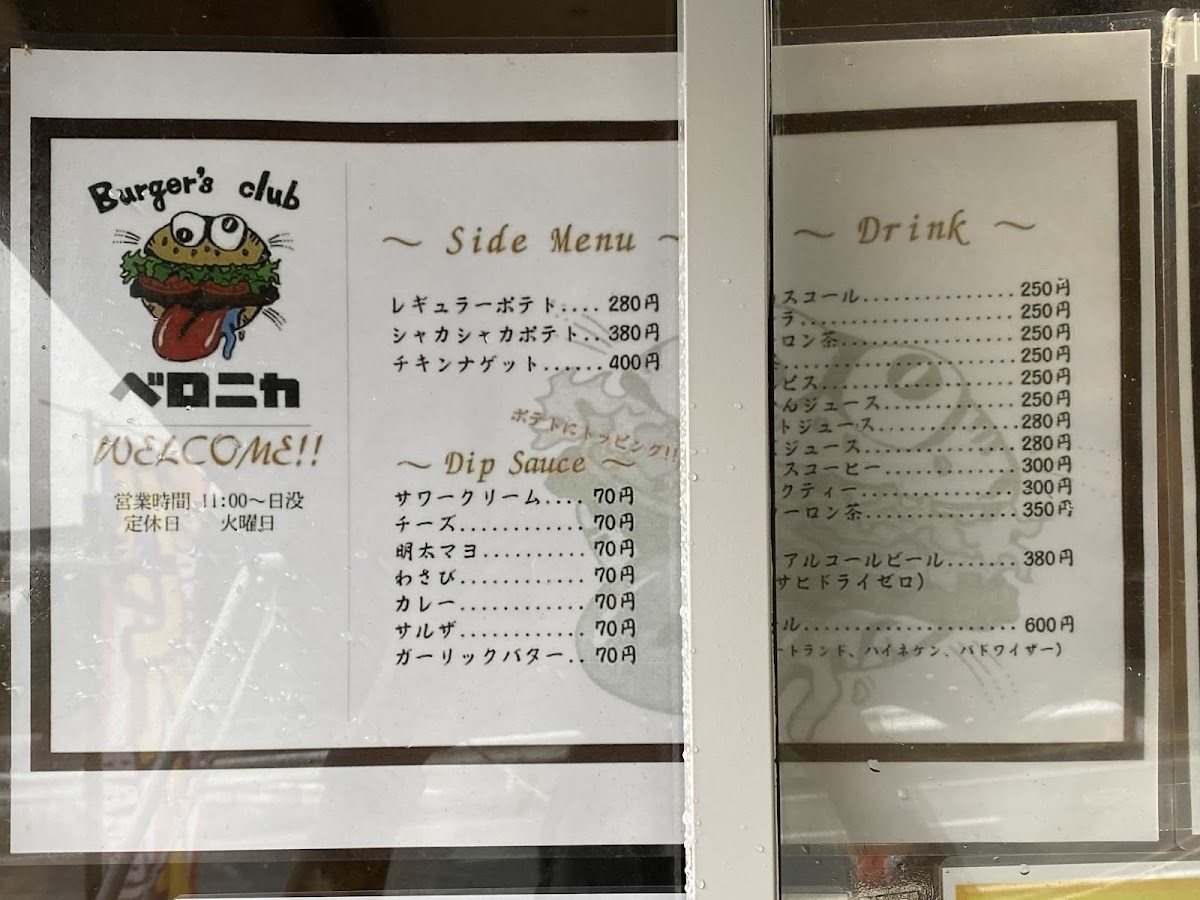 Burger's club
ベロニカ
WELCOME!!
営業時間 11:00〜日没
定休日 火曜日
〜 Side Menu 〜
レギュラーポテト.... 280円
シャカシャカポテト.. 380円
チキンナゲット...... 400円
ポテトにトッピング!!
〜 Dip Sauce 〜
サワークリーム.... 70円
チーズ............ 70円
明太マヨ.......... 70円
わさび............ 70円
カレー............ 70円
サルザ............ 70円
ガーリックバター.. 70円
〜 Drink 〜
スコール............... 250円
ラ..................... 250円
ロン茶................. 250円
250円
ピス................... 250円
んジュース............. 250円
トジュース............. 280円
ジュース............... 280円
スコーヒー............. 300円
クティー............... 300円
ーロン茶............... 350円
アルコールビール....... 380円
サヒドライゼロ)
ル..................... 600円
ートランド、ハイネケン、バドワイザー)